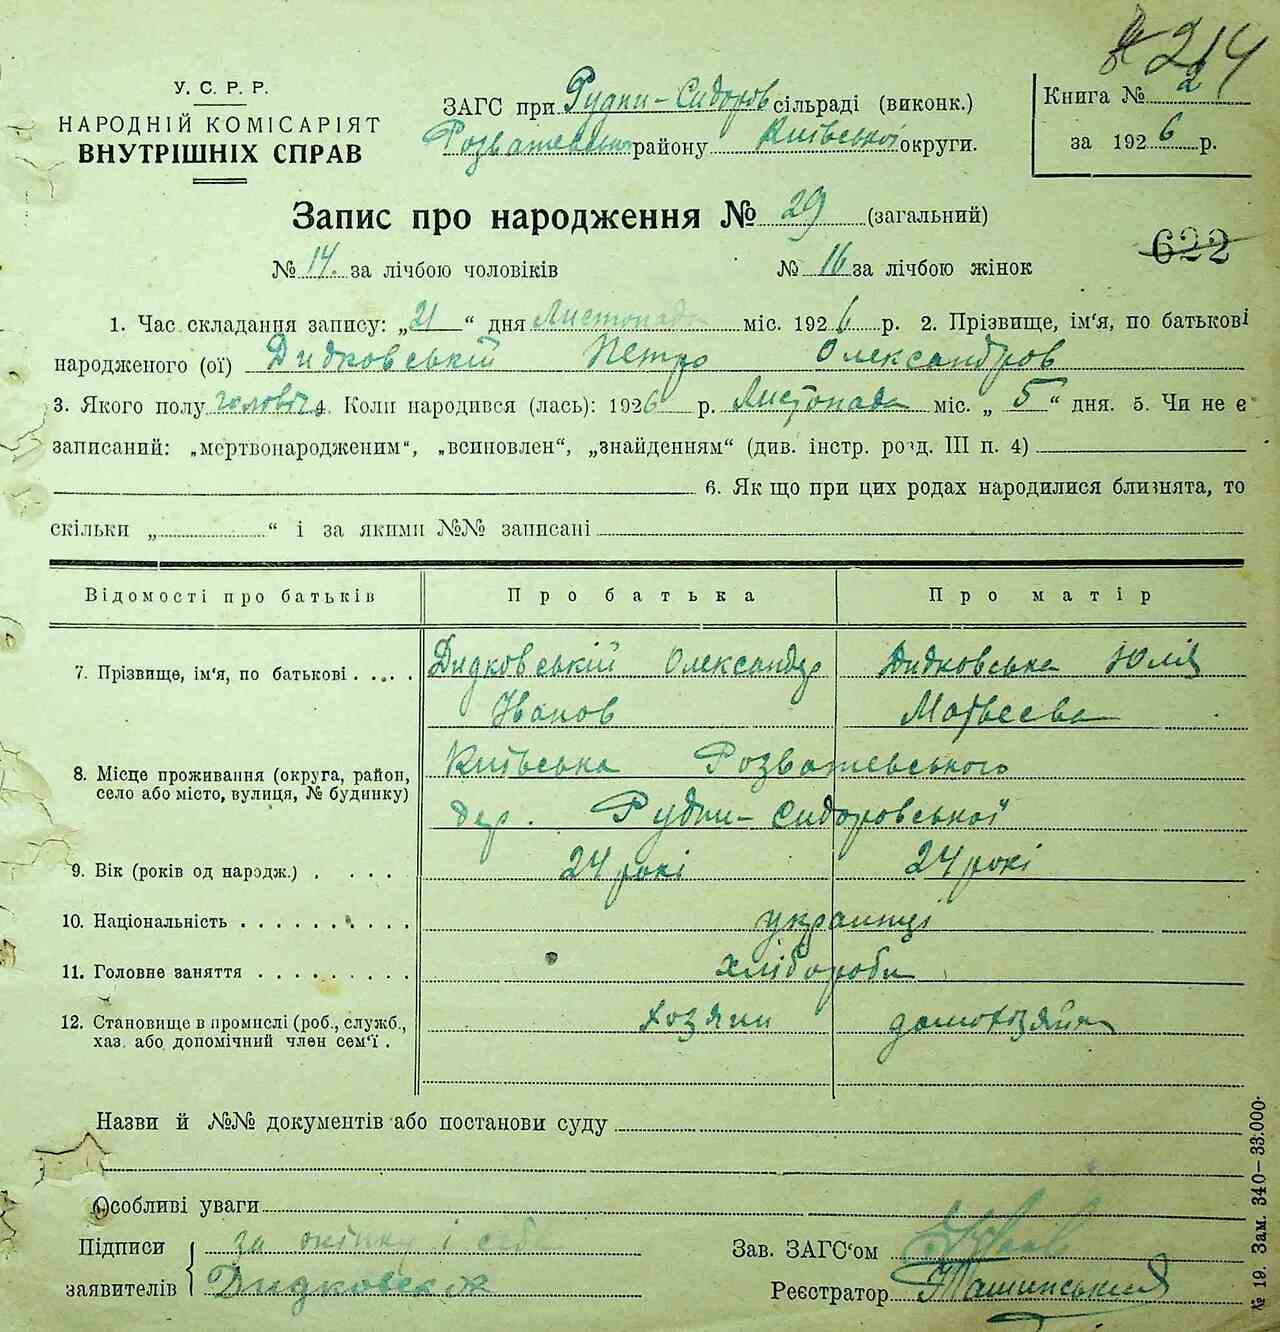 214
У. С. Р. Р.
НАРОДНІЙ КОМІСАРІЯТ
ВНУТРІШНІХ СПРАВ
ЗАГС при Рудни-Сидоров сільраді (виконк.)
Розважевськ району Київської округи.
Книга № 2
за 1926 р.
Запис про народження № 29 (загальний)
№ 14 за лічбою чоловіків № 16 за лічбою жінок
622
1. Час складання запису: „21“ дня Листопада міс. 1926 р. 2. Прізвище, ім'я, по батькові
народженого (ої) Дидковській Петро Олександров
3. Якого полу чоловіч 4. Коли народився (лась): 1926 р. Листопада міс. „5“ дня. 5. Чи не є
записаний: „мертвонародженим“, „всиновлен“, „знайденням“ (див. інстр. розд. III п. 4)
6. Як що при цих родах народилися близнята, то
скільки „ “ і за якими №№ записані
Відомості про батьків Про батька Про матір
7. Прізвище, ім'я, по батькові Дидковській Олександр Дидковська Юлія
Іванов Матвеева
8. Місце проживання (округа, район, село або місто, вулиця, № будинку) Київська Розважевського
дер. Рудни-Сидоровської
9. Вік (років од народж.) 24 рокі 24 рокі
10. Національність українці
11. Головне заняття хлібороби
12. Становище в промислі (роб., служб., хаз. або допомічний член сем'ї. хозяин домохозяйка
Назви й №№ документів або постанови суду
Особливі уваги
Підписи за жінку і себе
заявителів Дидковскій
Зав. ЗАГС'ом
Реєстратор Ташинський
№ 19. Зам. 340–33.000.